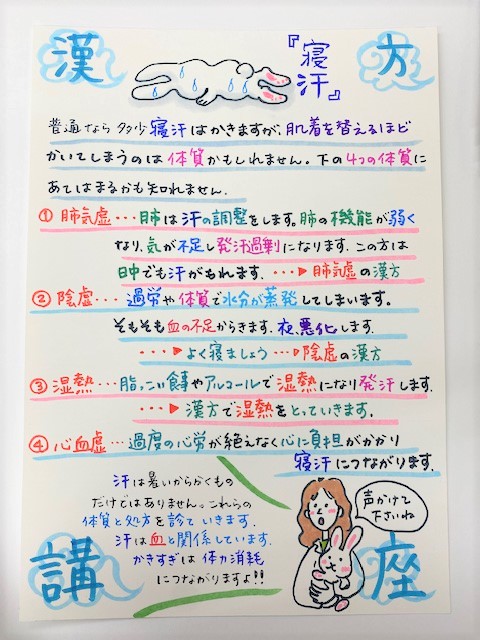 漢方
『寝汗』
普通なら多少寝汗はかきますが、肌着を替えるほど
かいてしまうのは体質かもしれません。下の4つの体質に
あてはまるかも知れません。
①肺気虚・・・肺は汗の調整をします。肺の機能が弱く
なり、気が不足し発汗過剰になります。この方は
日中でも汗がもれます。・・・▶肺気虚の漢方
②陰虚・・・過労や体質で水分が蒸発してしまいます。
そもそも血の不足からきます。夜、悪化します。
・・・▶よく寝ましょう・・・▷陰虚の漢方
③湿熱・・・脂っこい食事やアルコールで湿熱になり発汗します。
・・・▶漢方で湿熱をとっていきます。
④心血虚・・・過度の心労が絶えなく心に負担がかかり
寝汗につながります。
汗は暑いからかくもの
だけではありません。これらの
体質と処方を診ていきます。
汗は血と関係しています。
かきすぎは体力消耗
につながりますよ!!
声かけて
下さいね
講座